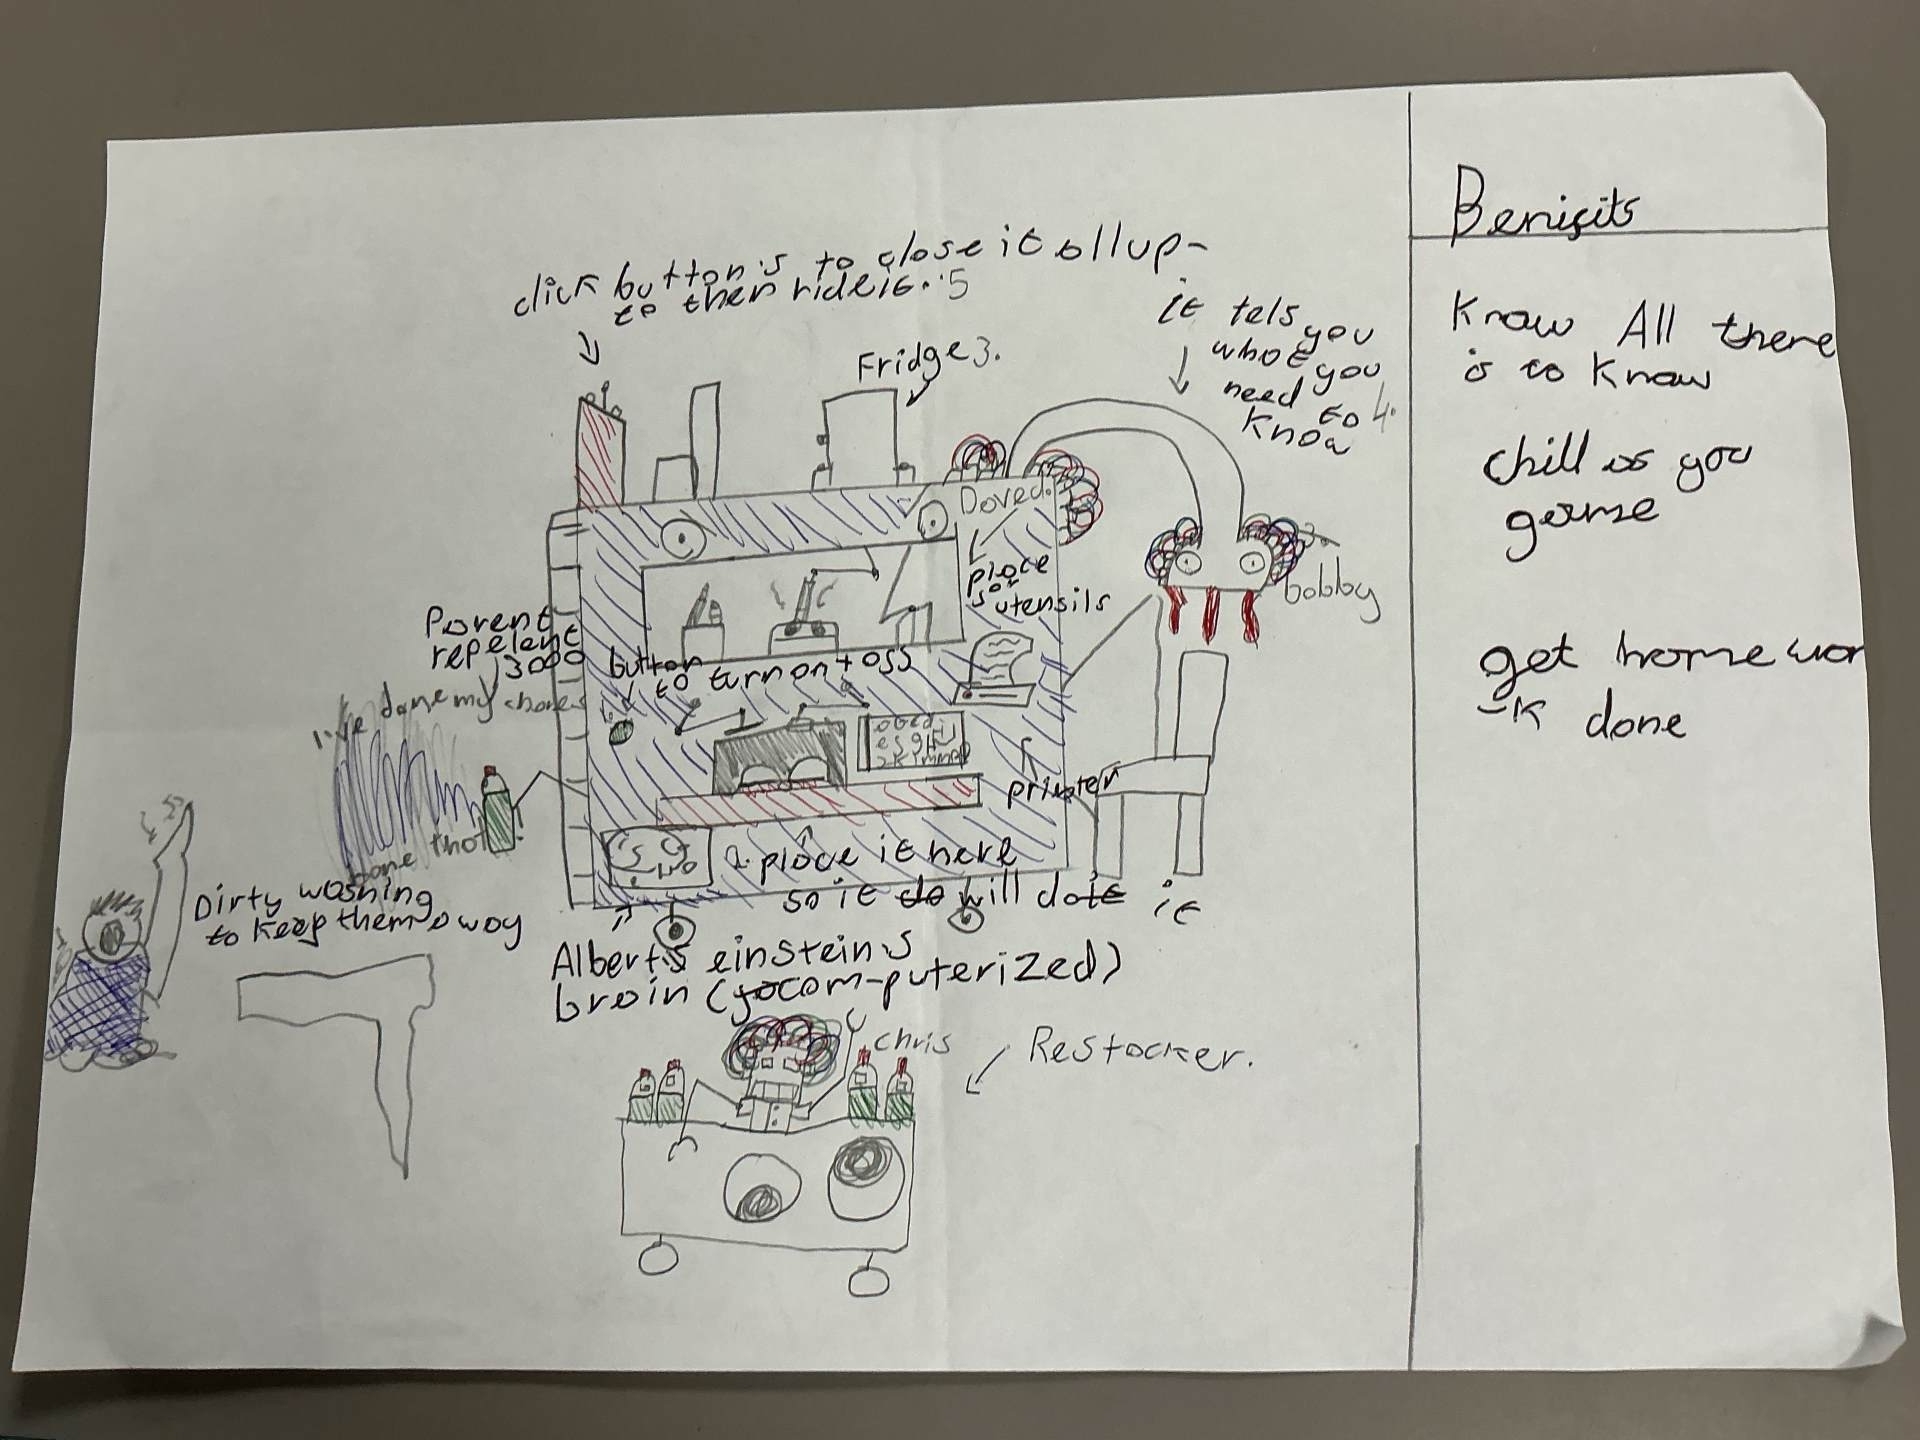 click button's to close it all up-
to then ride it. 5
it tels you
what you
need to 4.
know
Fridge 3.
place
for
utensils
bobby
Parent
repelent
3000
button
to turn on + off
i've done my chores
printer
2. place it here
so it do will do it it
Dirty washing
to keep them away
Albert's einstein's
brain (computerized)
chris
Restocker.
Benifits
Know All there
is to know
chill as you
game
get homewor
-k done